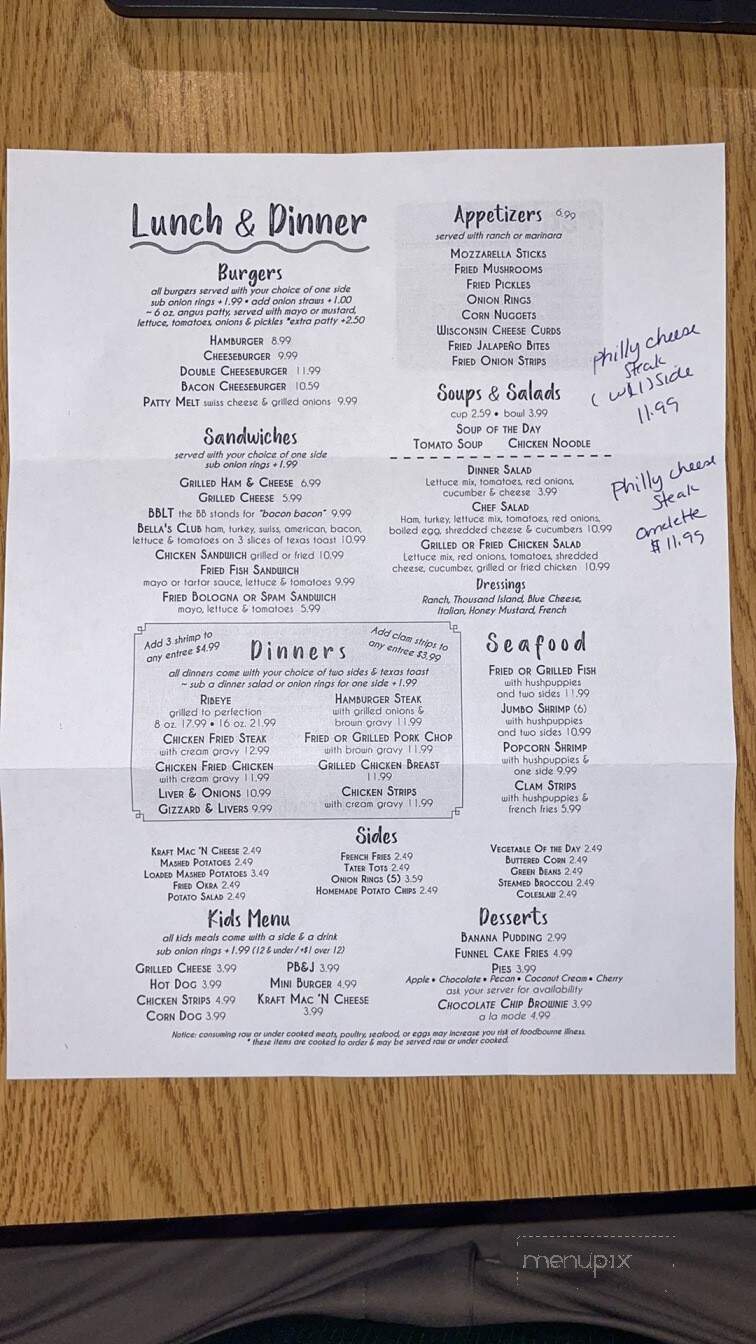 Lunch & Dinner
Burgers
all burgers served with your choice of one side
sub onion rings +1.99 • add onion straws +1.00
~ 6 oz. angus patty, served with mayo or mustard,
lettuce, tomatoes, onions & pickles *extra patty +2.50
Hamburger 8.99
Cheeseburger 9.99
Double Cheeseburger 11.99
Bacon Cheeseburger 10.59
Patty Melt swiss cheese & grilled onions 9.99
Sandwiches
served with your choice of one side
sub onion rings +1.99
Grilled Ham & Cheese 6.99
Grilled Cheese 5.99
BBLT the BB stands for "bacon bacon" 9.99
Bella's Club ham, turkey, swiss, american, bacon,
lettuce & tomatoes on 3 slices of texas toast 10.99
Chicken Sandwich grilled or fried 10.99
Fried Fish Sandwich
mayo or tartar sauce, lettuce & tomatoes 9.99
Fried Bologna or Spam Sandwich
mayo, lettuce & tomatoes 5.99
Appetizers 6.99
served with ranch or marinara
Mozzarella Sticks
Fried Mushrooms
Fried Pickles
Onion Rings
Corn Nuggets
Wisconsin Cheese Curds
Fried Jalapeño Bites
Fried Onion Strips
Soups & Salads
cup 2.59 • bowl 3.99
Soup of the Day
Tomato Soup Chicken Noodle
Dinner Salad
Lettuce mix, tomatoes, red onions,
cucumber & cheese 3.99
Chef Salad
Ham, turkey, lettuce mix, tomatoes, red onions,
boiled egg, shredded cheese & cucumbers 10.99
Grilled or Fried Chicken Salad
Lettuce mix, red onions, tomatoes, shredded
cheese, cucumber, grilled or fried chicken 10.99
Dressings
Ranch, Thousand Island, Blue Cheese,
Italian, Honey Mustard, French
philly cheese
Steak
(w/1) Side
11.99
philly cheese
Steak
omelette
$11.99
Add 3 shrimp to
any entree $4.99
Dinners
Add clam strips to
any entree $3.99
all dinners come with your choice of two sides & texas toast
~ sub a dinner salad or onion rings for one side +1.99
Ribeye
grilled to perfection
8 oz. 17.99 • 16 oz. 21.99
Chicken Fried Steak
with cream gravy 12.99
Chicken Fried Chicken
with cream gravy 11.99
Liver & Onions 10.99
Gizzard & Livers 9.99
Hamburger Steak
with grilled onions &
brown gravy 11.99
Fried or Grilled Pork Chop
with brown gravy 11.99
Grilled Chicken Breast
11.99
Chicken Strips
with cream gravy 11.99
Seafood
Fried or Grilled Fish
with hushpuppies
and two sides 11.99
Jumbo Shrimp (6)
with hushpuppies
and two sides 10.99
Popcorn Shrimp
with hushpuppies &
one side 9.99
Clam Strips
with hushpuppies &
french fries 5.99
Sides
Kraft Mac 'N Cheese 2.49
Mashed Potatoes 2.49
Loaded Mashed Potatoes 3.49
Fried Okra 2.49
Potato Salad 2.49
French Fries 2.49
Tater Tots 2.49
Onion Rings (5) 3.59
Homemade Potato Chips 2.49
Vegetable Of the Day 2.49
Buttered Corn 2.49
Green Beans 2.49
Steamed Broccoli 2.49
Coleslaw 2.49
Kids Menu
all kids meals come with a side & a drink
sub onion rings +1.99 (12 & under/+$1 over 12)
Grilled Cheese 3.99
Hot Dog 3.99
Chicken Strips 4.99
Corn Dog 3.99
PB&J 3.99
Mini Burger 4.99
Kraft Mac 'N Cheese
3.99
Desserts
Banana Pudding 2.99
Funnel Cake Fries 4.99
Pies 3.99
Apple • Chocolate • Pecan • Coconut Cream • Cherry
ask your server for availability
Chocolate Chip Brownie 3.99
a la mode 4.99
Notice: consuming raw or under cooked meats, poultry, seafood, or eggs may increase you risk of foodbourne illness.
* these items are cooked to order & may be served raw or under cooked.
menupix